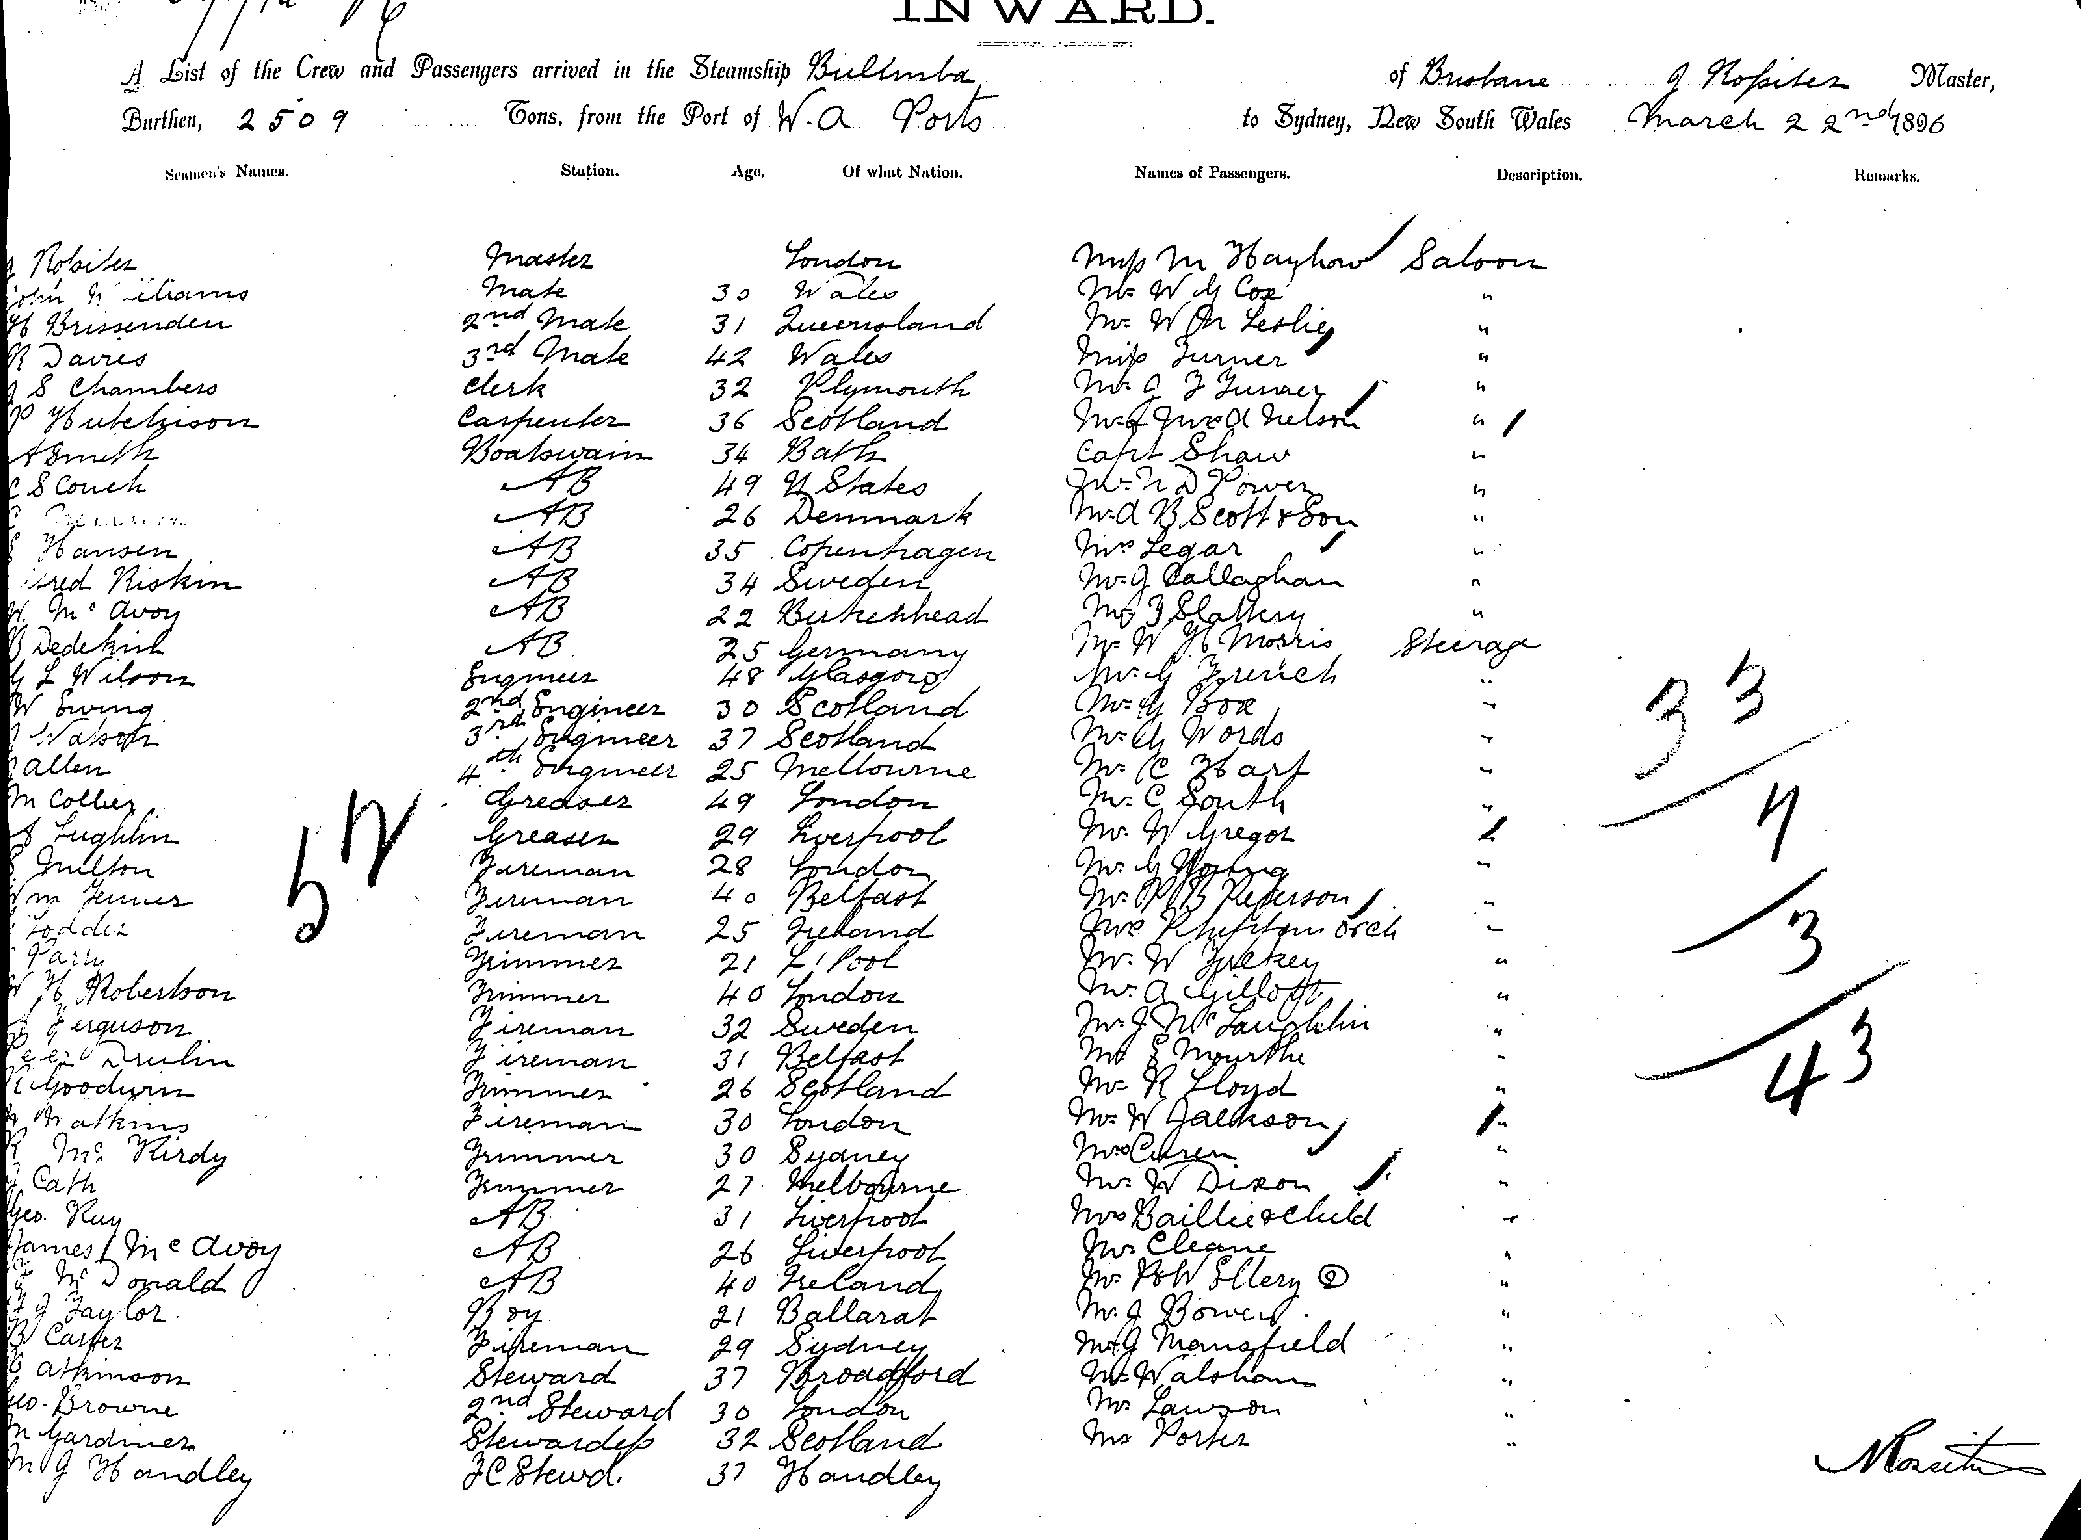 INWARD.
A List of the Crew and Passengers arrived in the Steamship Bulimba of Brisbane J Rossiter Master,
Burthen, 2509 Tons, from the Port of W.A Ports to Sydney, New South Wales March 22nd 1896
Seamen's Names. Station. Age. Of what Nation. Names of Passengers. Description. Remarks.
J Rossiter Master London Miss M Hayhow Saloon
John Williams Mate 30 Wales Mr W G Cox "
H Brissenden 2nd Mate 31 Queensland Mr W M Leslie "
R Davies 3rd Mate 42 Wales Miss Turner "
J S Chambers Clerk 32 Plymouth Mr J F Turner "
P Hutchison Carpenter 36 Scotland Nelson "
A Smith Boatswain 34 Bath Capt Shaw "
C S Couch AB 49 U States Power "
AB 26 Denmark Mr A B Scott & Son "
Hansen AB 35 Copenhagen Mrs Legar "
fred Riskin AB 34 Sweden Mr J Callaghan "
W. McAvoy AB 22 Birkenhead Slattery "
B Dedekind AB 25 Germany Mr W H Morris Steerage
G L Wilson Engineer 48 Glasgow Mr G French "
W Ewing 2nd Engineer 30 Scotland Mr G Box "
J Watson 3rd Engineer 37 Scotland Mr G Words "
Allen 4th Engineer 25 Melbourne Mr C Hart "
M Collier Greaser 49 London Mr C South "
J Lughlin Greaser 29 Liverpool Mr W Gregor "
Milton Fireman 28 London Mr G Young "
Wm Jenner Fireman 40 Belfast Mr P B Peterson "
Fireman 25 Ireland "
Parry Trimmer 21 L'Pool Mr W "
W H Robertson Trimmer 40 London Mr A "
Ferguson Fireman 32 Sweden Mr J McLaughlin "
Fireman 31 Belfast "
Goodwin Trimmer 26 Scotland Mr R Lloyd "
Watkins Fireman 30 London Mr W Jackson "
R McKirdy Trimmer 30 Sydney Mrs "
J Cath Trimmer 27 Melbourne Mr W Dixon "
Geo. Ray AB 31 Liverpool Mrs Baillie & Child "
James McAvoy AB 26 Liverpool Mrs Cleane "
McDonald AB 40 Ireland Ellery 2 "
J Taylor Boy 21 Ballarat Mr J Bower "
B Carter Fireman 29 Sydney Mr G Mansfield "
Atkinson Steward 37 Broadford Mr Walsham "
Geo. Browne 2nd Steward 30 London Mr Lawson "
M Gardiner Stewardess 32 Scotland Mr Porter "
M J Handley FC Stewd. 37 Handley
52
33
7
3
43
J Rossiter